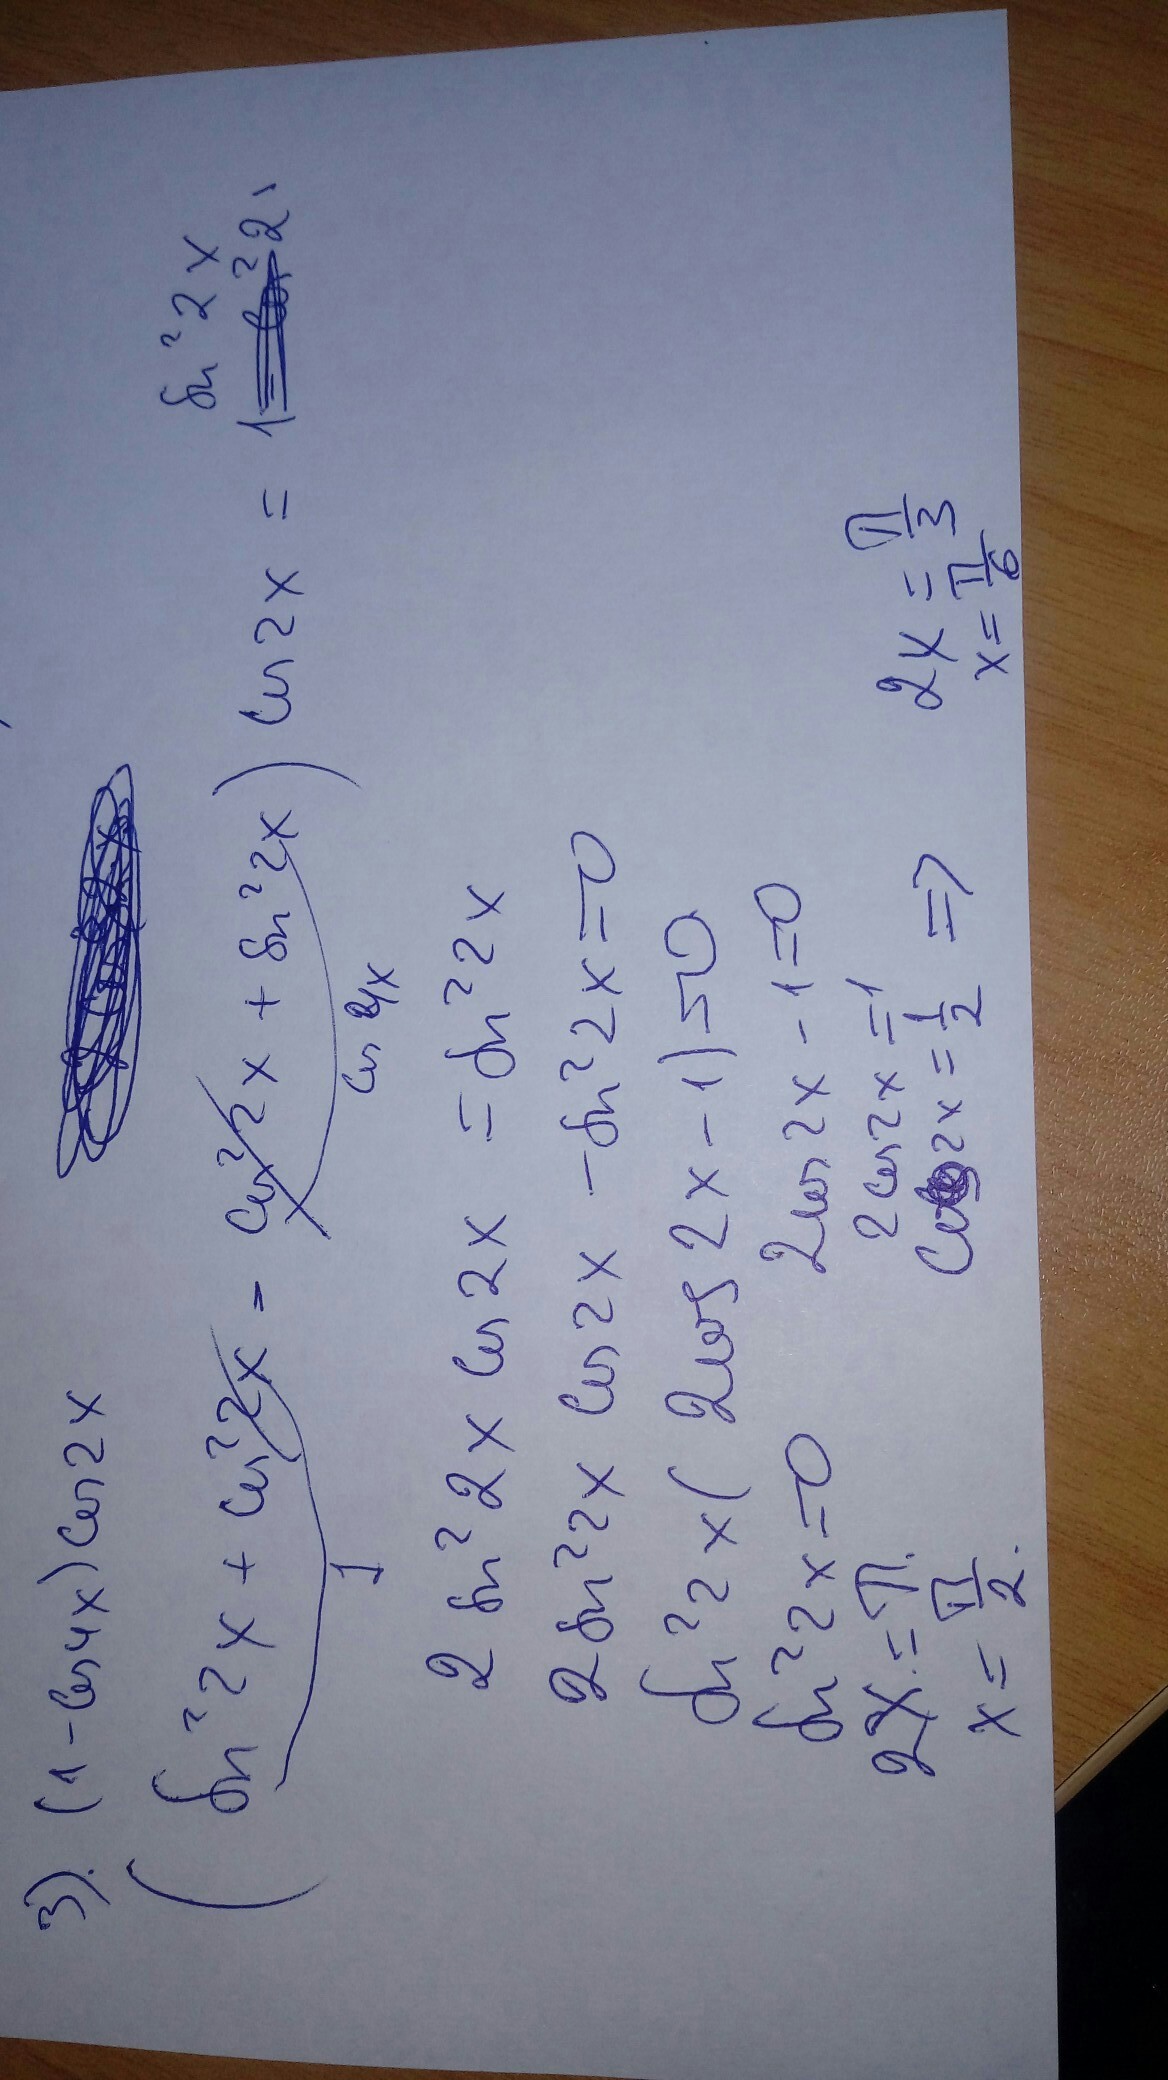 3). (1 - cos4x) cos2x
sin²2x
(sin²2x + cos²2x - cos²2x + sin²2x) cos2x =
1
cos 4x
2 sin²2x cos2x = sin²2x
2 sin²2x cos2x - sin²2x = 0
sin²2x (2cos2x - 1) = 0
sin²2x = 0 2cos2x - 1 = 0
2x = π. 2cos2x = 1 2x = π/3
x = π/2. cos2x = 1/2 => x = π/6